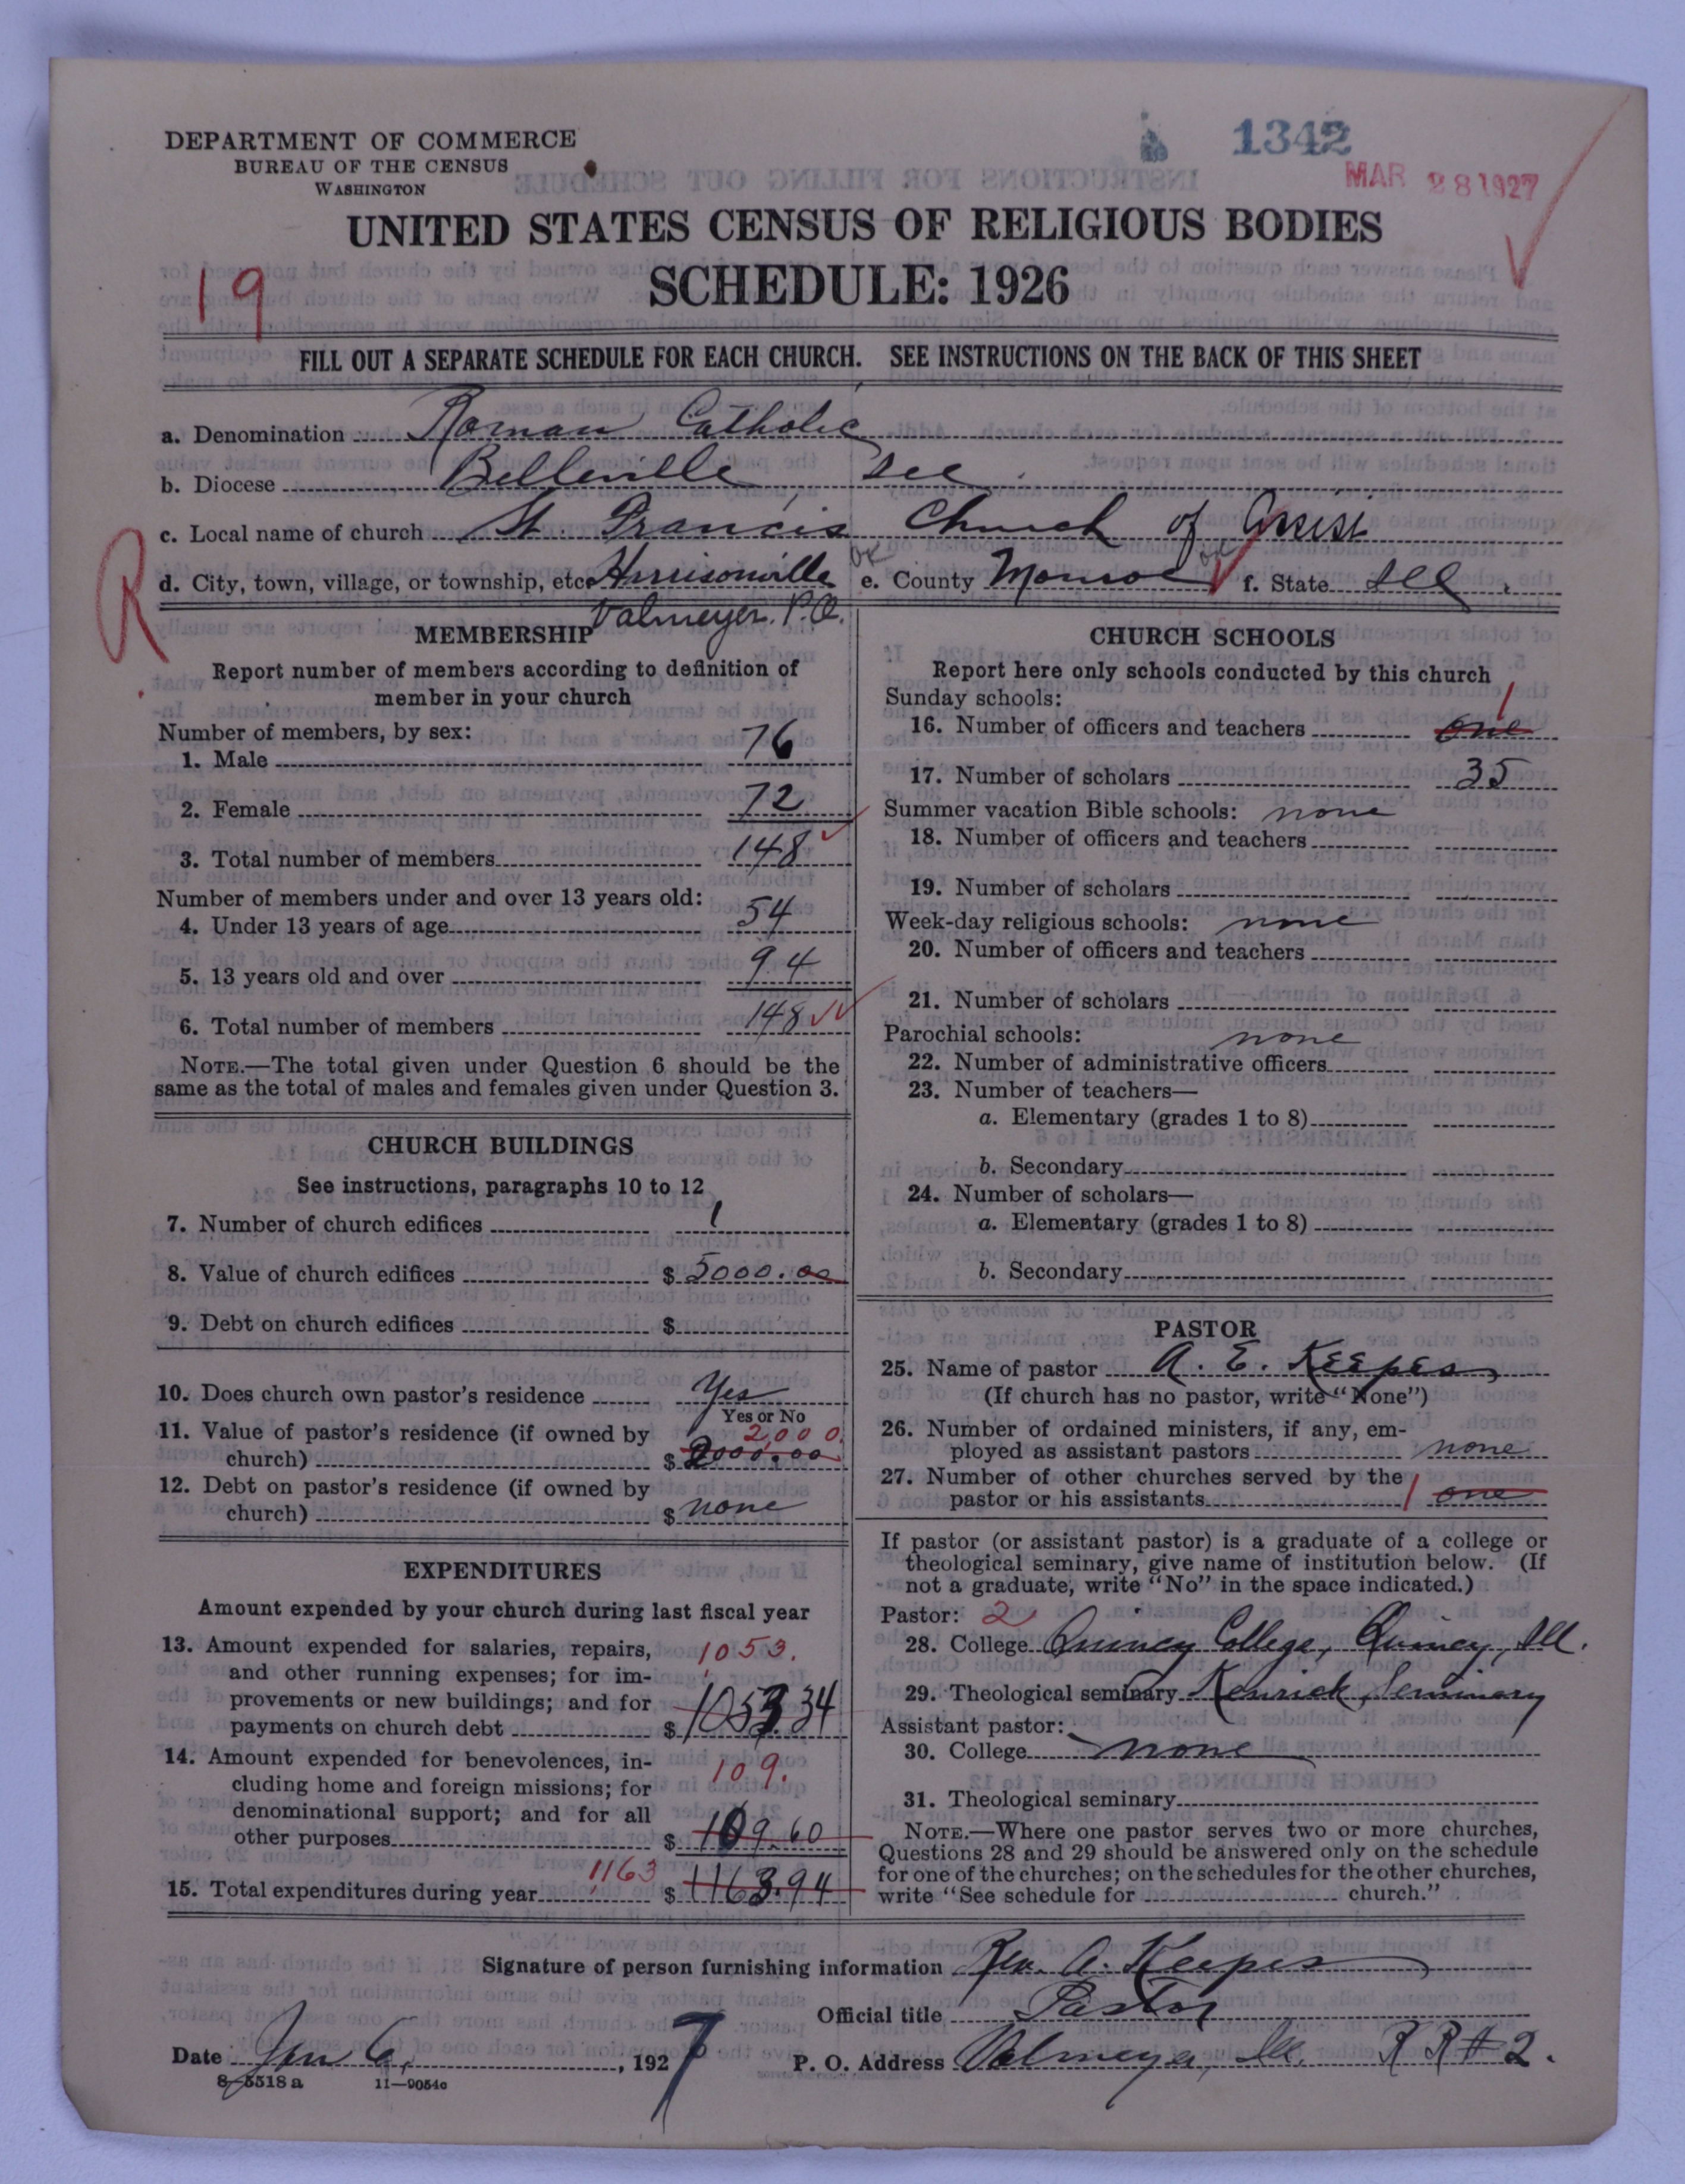 DEPARTMENT OF COMMERCE
BUREAU OF THE CENSUS
WASHINGTON
1342
MAR 28 1927
UNITED STATES CENSUS OF RELIGIOUS BODIES
SCHEDULE: 1926
19
FILL OUT A SEPARATE SCHEDULE FOR EACH CHURCH. SEE INSTRUCTIONS ON THE BACK OF THIS SHEET
a. Denomination Roman Catholic
b. Diocese Belleville See
c. Local name of church St. Francis Church of Assisi
R
d. City, town, village, or township, etc. Harrisonville e. County Monroe f. State Ill.
Valmeyer. P.O.
MEMBERSHIP
Report number of members according to definition of
member in your church
Number of members, by sex:
1. Male 76
2. Female 72
3. Total number of members 148
Number of members under and over 13 years old:
4. Under 13 years of age 54
5. 13 years old and over 94
6. Total number of members 148
NOTE.—The total given under Question 6 should be the
same as the total of males and females given under Question 3.
CHURCH BUILDINGS
See instructions, paragraphs 10 to 12
7. Number of church edifices 1
8. Value of church edifices $ 5000.00
9. Debt on church edifices $
10. Does church own pastor's residence Yes
Yes or No
11. Value of pastor's residence (if owned by 2,000.
church) $ 2000.00
12. Debt on pastor's residence (if owned by
church) $ none
EXPENDITURES
Amount expended by your church during last fiscal year
13. Amount expended for salaries, repairs, 1053.
and other running expenses; for im-
provements or new buildings; and for
payments on church debt $ 1053 34
14. Amount expended for benevolences, in-
cluding home and foreign missions; for 109.
denominational support; and for all
other purposes $ 109.60
15. Total expenditures during year 1163 $ 1163.94
CHURCH SCHOOLS
Report here only schools conducted by this church
Sunday schools: 1
16. Number of officers and teachers one
17. Number of scholars 35
Summer vacation Bible schools: none
18. Number of officers and teachers
19. Number of scholars
Week-day religious schools: none
20. Number of officers and teachers
21. Number of scholars
Parochial schools: none
22. Number of administrative officers
23. Number of teachers—
a. Elementary (grades 1 to 8)
b. Secondary
24. Number of scholars—
a. Elementary (grades 1 to 8)
b. Secondary
PASTOR
25. Name of pastor A. E. Keepes
(If church has no pastor, write "None")
26. Number of ordained ministers, if any, em-
ployed as assistant pastors none
27. Number of other churches served by the
pastor or his assistants 1 one
If pastor (or assistant pastor) is a graduate of a college or
theological seminary, give name of institution below. (If
not a graduate, write "No" in the space indicated.)
Pastor: 2
28. College Quincy College, Quincy, Ill.
29. Theological seminary Kenrick Seminary
Assistant pastor:
30. College none
31. Theological seminary
NOTE.—Where one pastor serves two or more churches,
Questions 28 and 29 should be answered only on the schedule
for one of the churches; on the schedules for the other churches,
write "See schedule for church."
Signature of person furnishing information Rev. A. Keepes
Official title Pastor
Date Jan 6, , 1927 P. O. Address Valmeyer, Ill. R R # 2.
8-5518 a 11—9054c